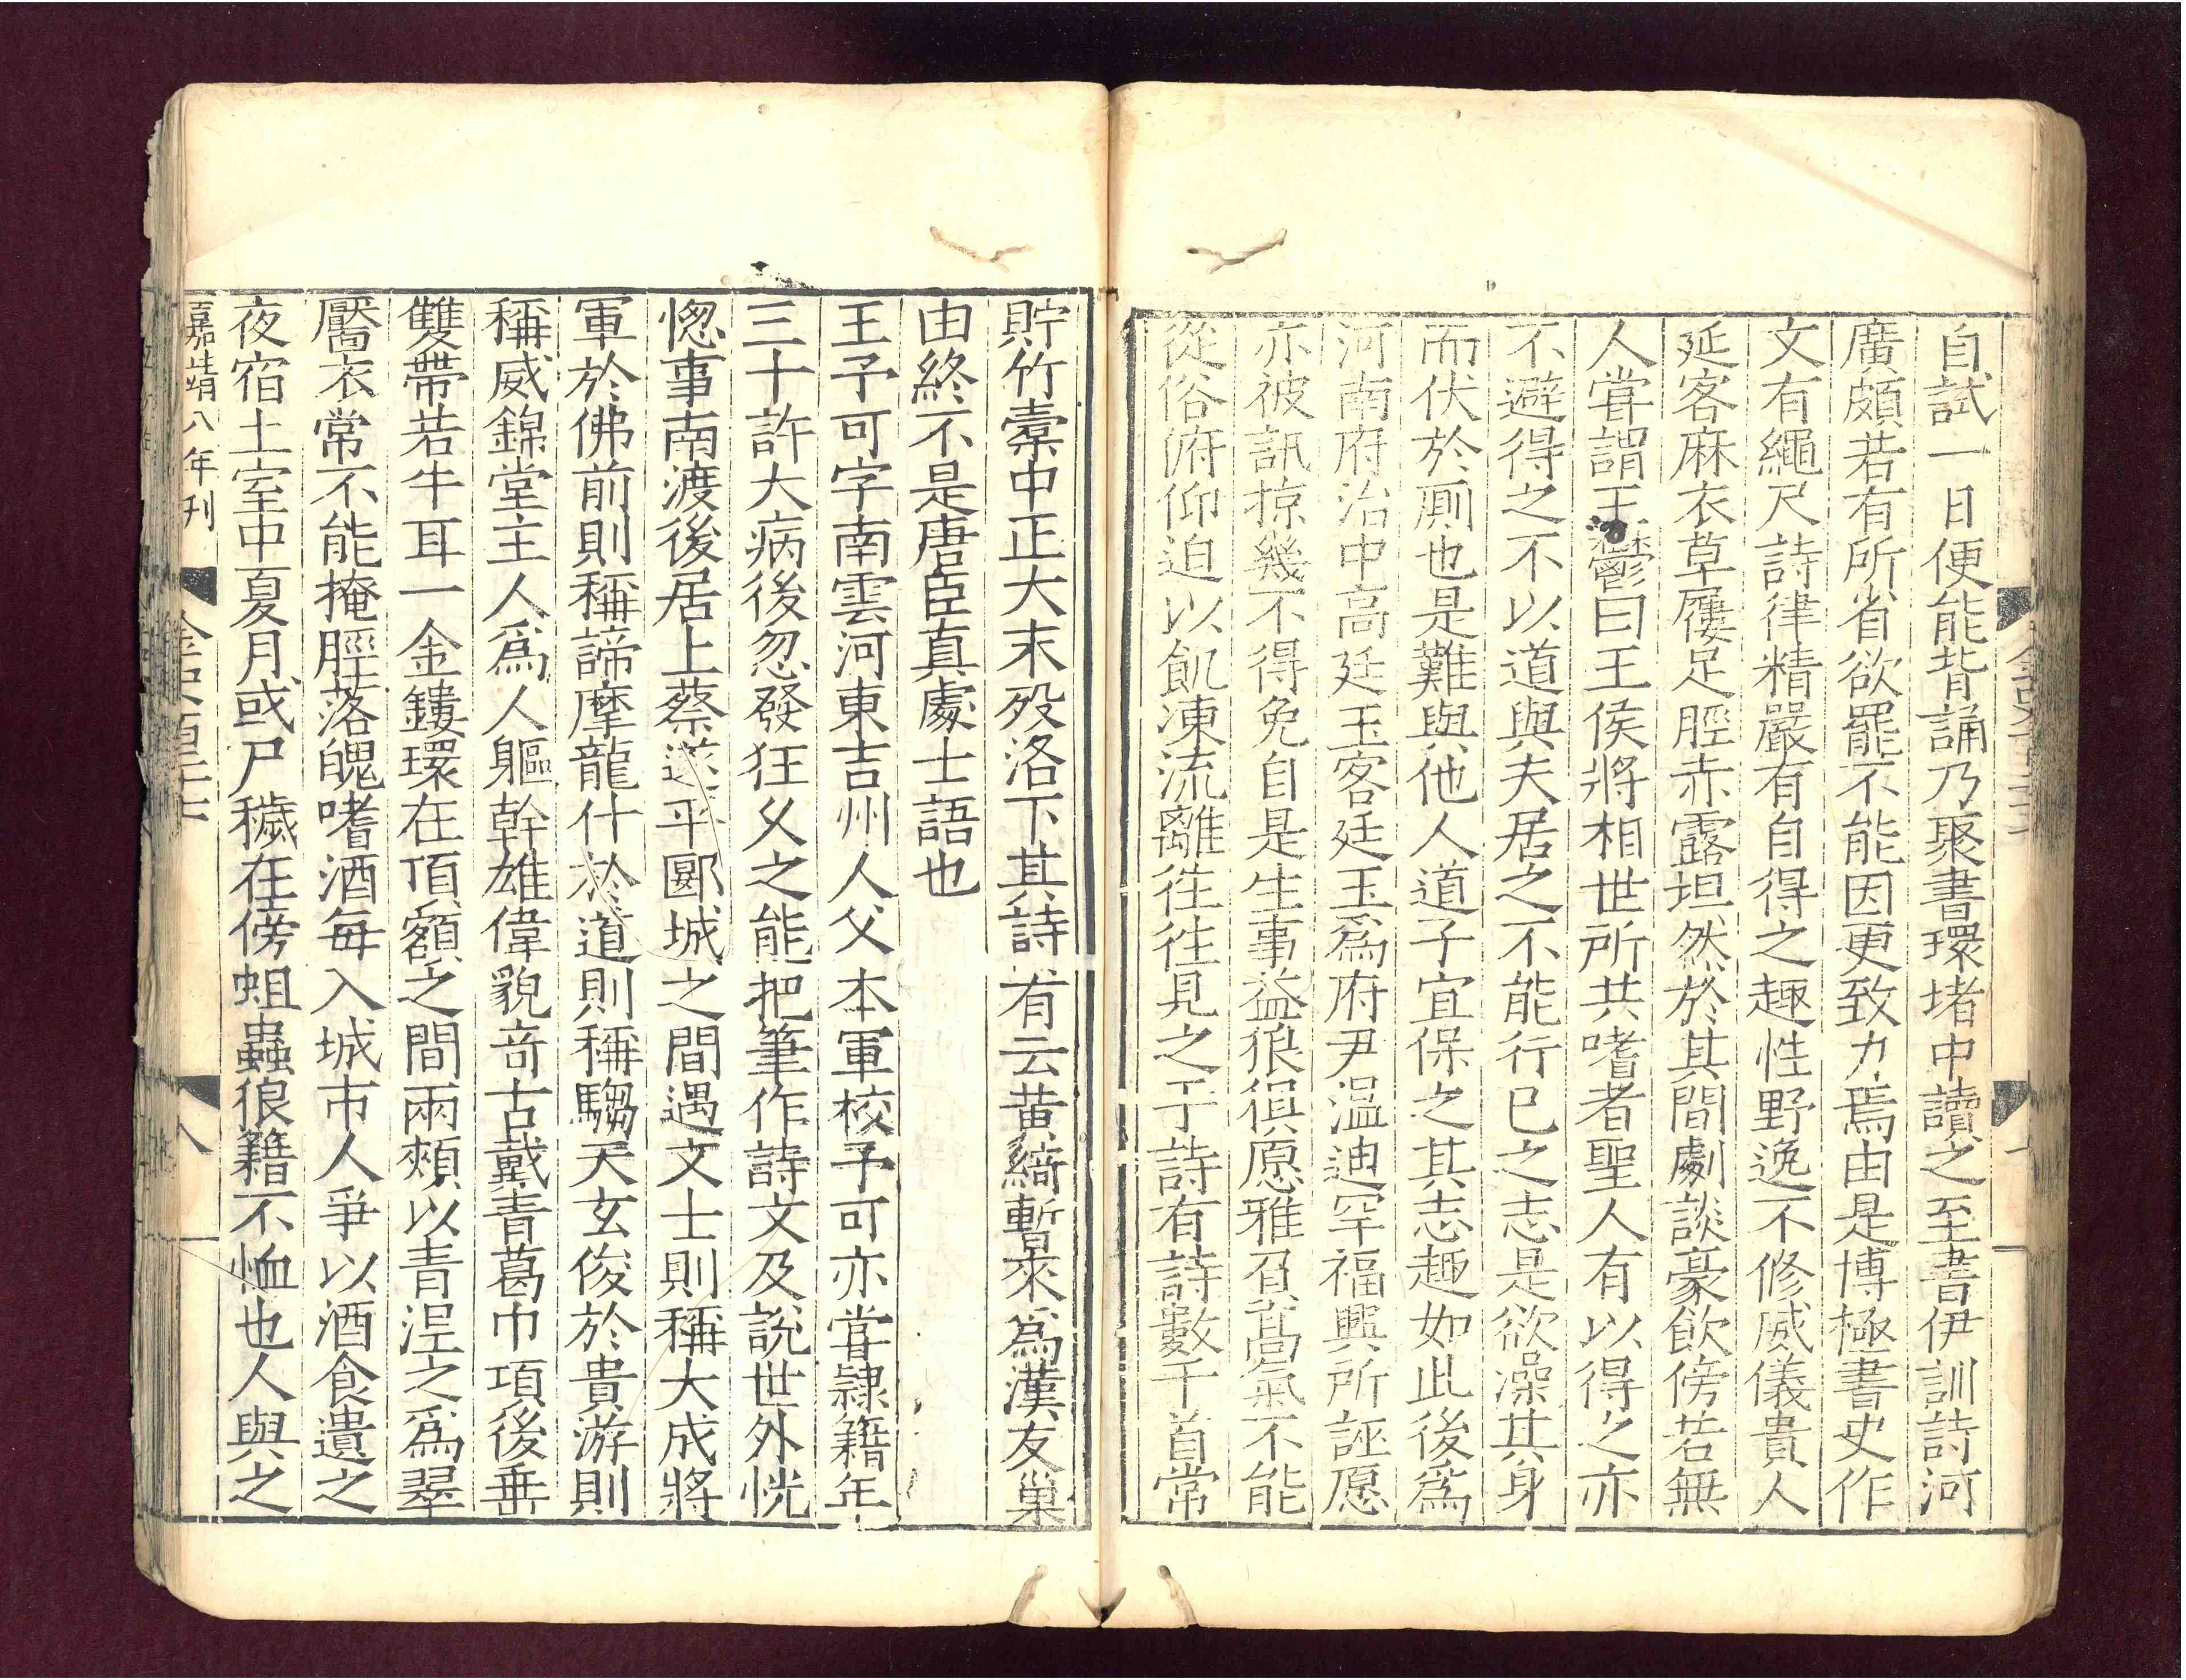 自試一日便能背誦乃聚書環堵中讀之至書伊訓詩河
廣頗若有所省欲罷不能因更致力焉由是博極書史作
文有繩尺詩律精嚴有自得之趣性野逸不修威儀貴人
延客麻衣草屨足脛赤露坦然於其間劇談豪飲傍若無
人嘗謂王鬱曰王侯將相世所共嗜者聖人有以得之亦
不避得之不以道與夫居之不能行已之志是欲澡其身
而伏於厠也是難與他人道子宜保之其志趣如此後爲
河南府治中高廷玉客廷玉爲府尹温迪罕福興所誣愿
亦被訊掠幾不得免自是生事益狼俱愿雅負高氣不能
從俗俯仰迫以飢凍流離往往見之于詩有詩數千首常
貯竹橐中正大末殁洛下其詩有云黄綺暫來爲漢友巢
由終不是唐臣真處士語也
王予可字南雲河東吉州人父本軍校予可亦嘗隷籍年
三十許大病後忽發狂乆之能把筆作詩文及説世外恍
惚事南渡後居上蔡遂平郾城之間遇文士則稱大成將
軍於佛前則稱諦摩龍什於道則稱騶天玄俊於貴游則
稱威錦堂主人爲人軀幹雄偉貌竒古戴青葛巾項後垂
雙帶若牛耳一金鏤環在頂額之間兩頰以青涅之爲翠
靨衣常不能掩脛落魄嗜酒每入城市人爭以酒食遺之
夜宿土室中夏月或尸穢在傍蛆蟲狼籍不恤也人與之
嘉靖八年刊
金史百二十七
八